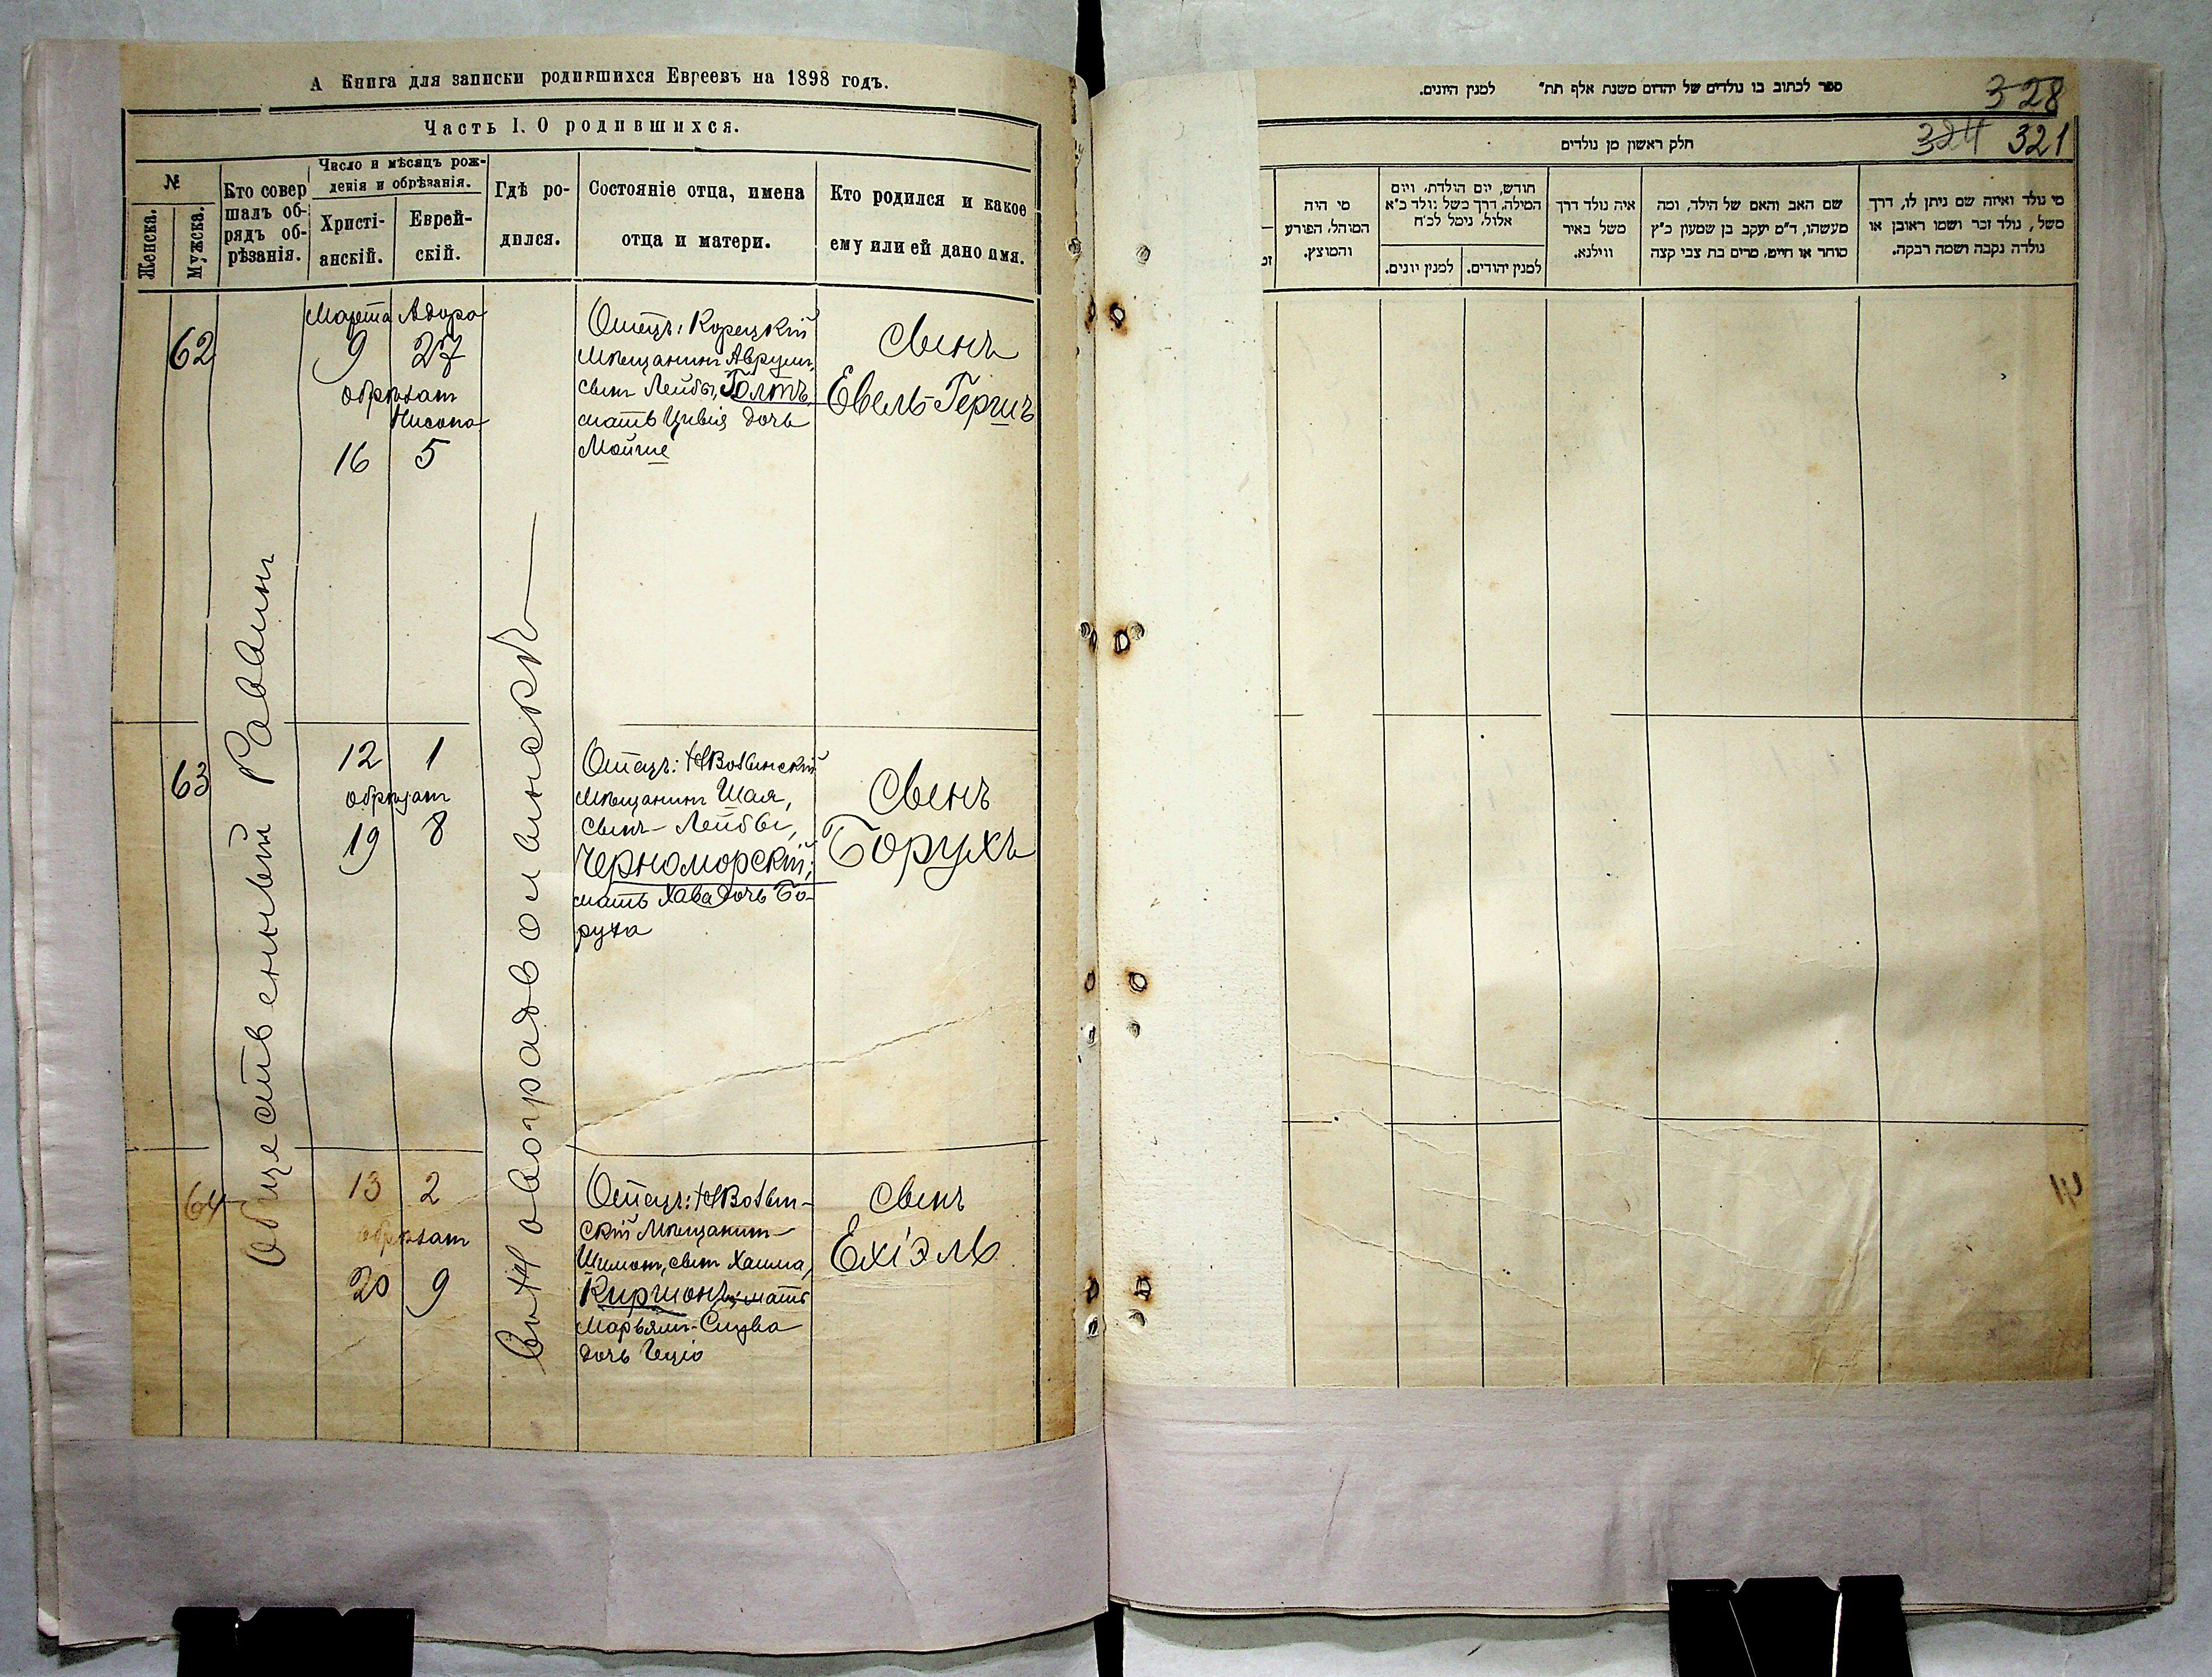 А Книга для записки родившихся Евреевъ на 1898 годъ.
Часть I. О родившихся.
№
Женска.
Мужска.
Кто совер
шалъ об-
рядъ об-
рѣзанія.
Число и мѣсяцъ рож-
денія и обрѣзанія.
Христі-
анскій.
Еврей-
скій.
Гдѣ ро-
дился.
Состояніе отца, имена
отца и матери.
Кто родился и какое
ему или ей дано имя.
Общественный Раввинъ
Въ Новоградволынскѣ
62
Марта Адара
9 27
обрѣзанъ
Нисона
16 5
Отецъ: Корецкій
Мѣщанинъ Аврумъ,
сынъ Лейбы, Голтъ,
мать Цивія дочь
Мойше
сынъ
Евель-Гершъ
63
12 1
обрѣзанъ
19 8
Отецъ: НВолынскій
Мѣщанинъ Шая,
сынъ Лейбы,
Черноморскій;
мать Хава дочь Бо-
руха
сынъ
Борухъ
64
13 2
обрѣзанъ
20 9
Отецъ: НВолын-
скій Мѣщанинъ
Шимон, сынъ Хаима,
Киршонъ; мать
Марьямъ-Слува
дочь
сынъ
Ехіэль
ספר לכתוב בו נולדים של יהדום משנת אלף תת״ למנין היונים.
328
חלק ראשון מן נולדים
324 321
מי נולד ואיזה שם ניתן לו, דרך
משל, נולד זכר ושמו ראובן או
נולדה נקבה ושמה רבקה.
שם האב והאם של הילד, ומה
מעשהו, ד״מ יעקב בן שמעון כ״ץ
סוחר או חייט. מרים בת צבי קצה
איה נולד דרך
משל באיר
ווילנא.
חודש, יום הולדת, ויום
המילה, דרך משל נולד כ״א
אלול, נימל לכ״ח
למנין יהודים.
למנין יונים.
מי היה
המוהל, הפורע
והמוצץ.